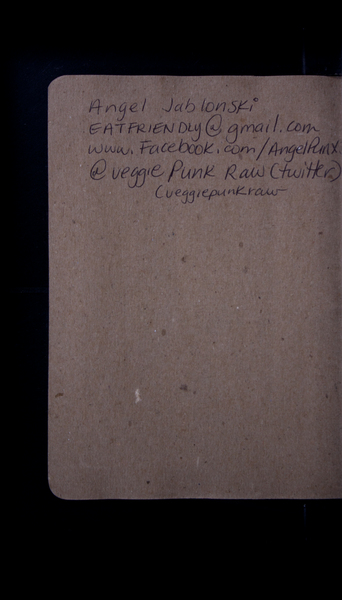 Angel Jablonski
EATFRIENDLY@gmail.com
www.Facebook.com/AngelPunX
@veggie Punk Raw (twitter)
(veggiepunkraw